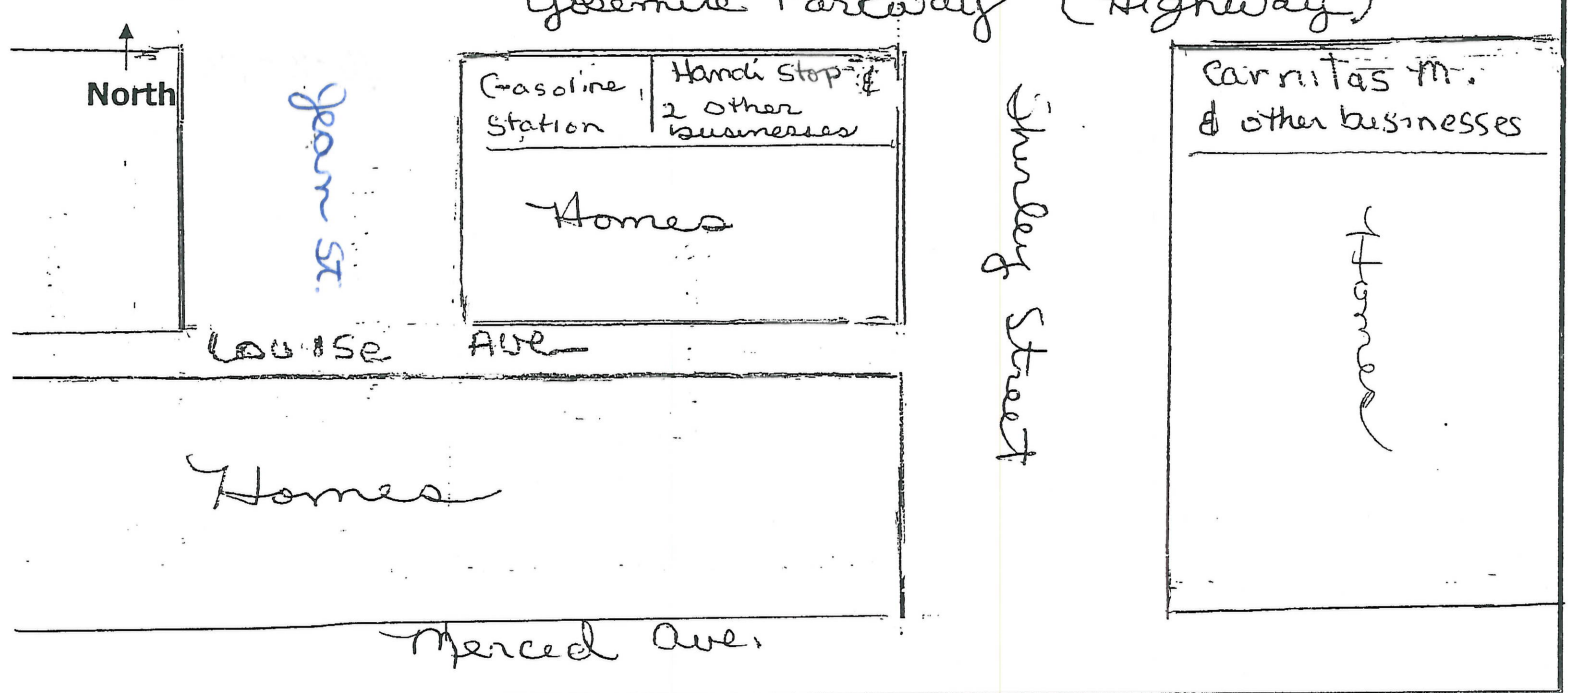 Yosemite Parkway (Highway)
North
Jean St.
Gasoline
Station
Handi Stop &
2 other
businesses
Homes
Shirley Street
Carnitas M.
& other businesses
Homes
Louise Ave
Homes
Merced Ave.